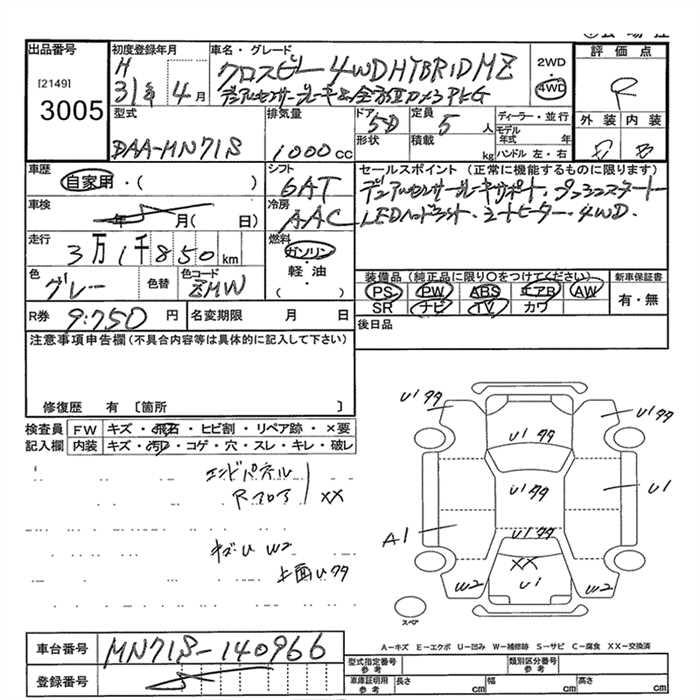 出品番号
[2149]
3005
初度登録年月
H
31年 4月
車名・グレード
クロスビー 4WD HYBRID MZ
デュアルセンサーブレーキS 全方位カメラPKG
2WD
4WD
評価点
R
外装 内装
D B
型式
DAA-MN71S
排気量
1000cc
ドア 5D
形状
定員 5人
積載 kg
ディーラー・並行
モデル年式 年
ハンドル 左・右
車歴
自家用・( )
シフト
6AT
車検
年 月( 日)
冷房
AAC
走行
3万1千850km
燃料
ガソリン
軽・油
( )
色
グレー
色替
色コード
ZMW
R券 9.750円
名変期限 月 日
セールスポイント (正常に機能するものに限ります)
デュアルセンサーブレーキサポート・プッシュスタート
LEDヘッドライト・シートヒーター・4WD.
装備品(純正品に限り○をつけてください)
PS PW ABS エアB AW
SR ナビ TV カワ
新車保証書
有・無
後日品
注意事項申告欄(不具合内容等は具体的に記入して下さい)
修復歴 有 〔箇所 〕
検査員記入欄
FW キズ・飛石・ヒビ割・リペア跡・×要
内装 キズ・汚レ・コゲ・穴・スレ・キレ・破レ
エンドパネル
Rフロア XX
キズU W2
上面Uアタ
U1アタ
U1アタ
U1アタ
U1アタ
U1
A1
U1アタ
XX
U1
W2
W2
スペア
A−キズ E−エクボ U−凹み W−補修跡 S−サビ C−腐食 XX−交換済
車台番号
MN71S-140966
登録番号
型式指定番号
参考
類別区分番号
参考
車庫証明用
参考
長さ cm
幅 cm
高さ cm